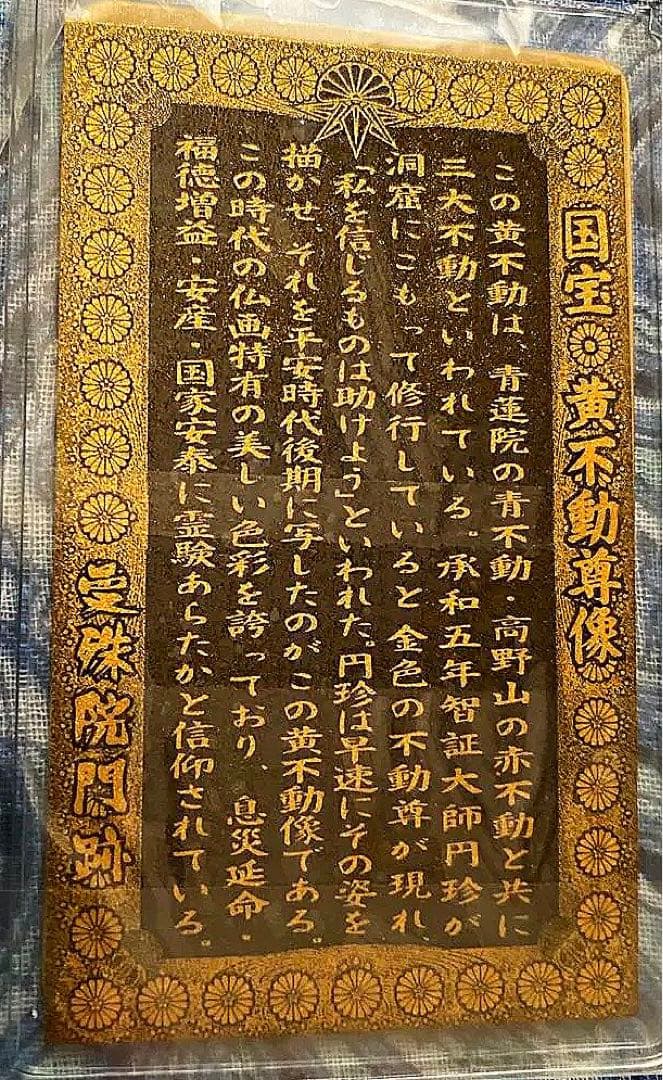 国宝 黄不動尊像
この黄不動は、青蓮院の青不動・高野山の赤不動と共に
三大不動といわれている。承和五年智証大師円珍が
洞窟にこもって修行していると金色の不動尊が現れ、
「私を信じるものは助けよう」といわれた。円珍は早速にその姿を
描かせ、それを平安時代後期に写したのがこの黄不動像である。
この時代の仏画特有の美しい色彩を誇っており、息災延命・
福徳増益・安産・国家安泰に霊験あらたかと信仰されている。
曼殊院門跡